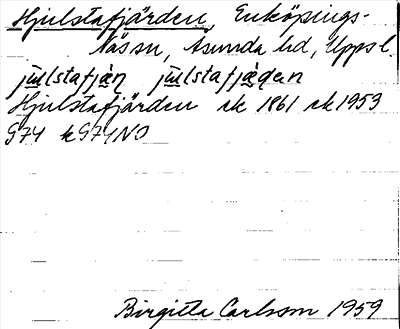 Hjulstafjärden, Enköpings-
Näs sn, Åsunda hd, Uppl.
ju̅lstafjàn ju̅lstafjàḍen
Hjulstafjärden ek 1861 ek 1953
G74 kG74NO
Birgitta Carlsson 1959